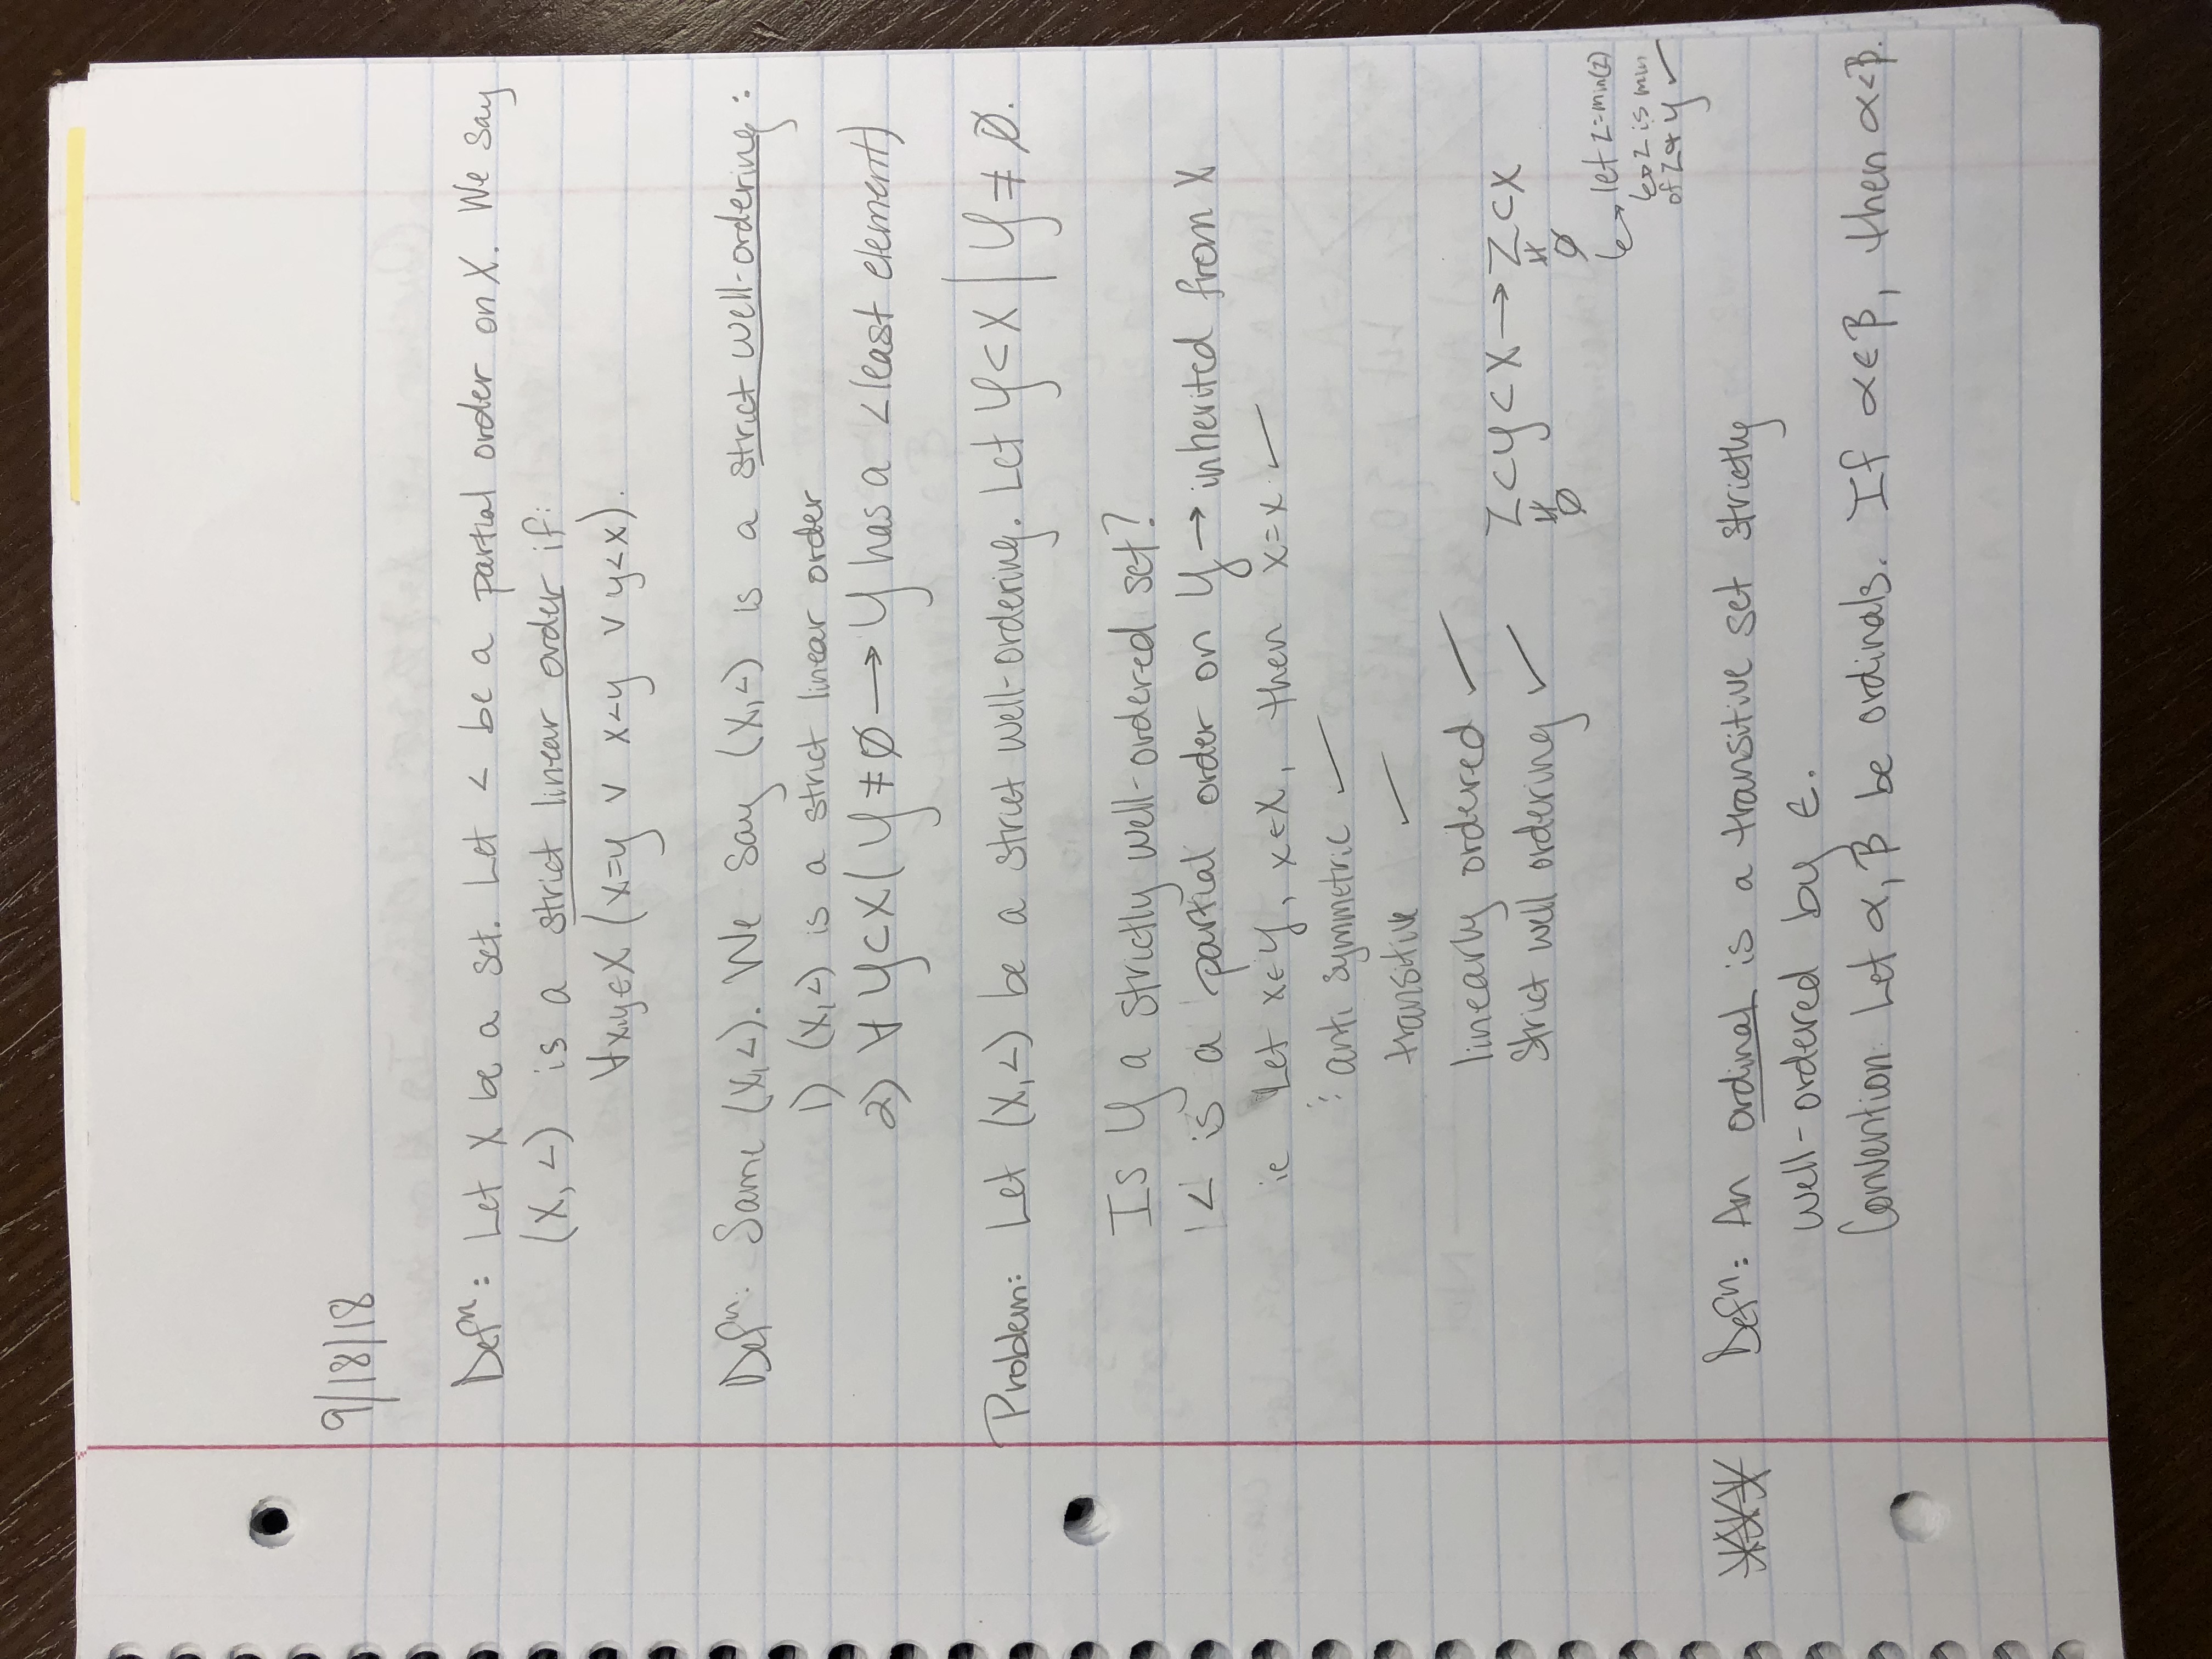 9/18/18
Defⁿ: Let X be a set. Let < be a partial order on X. We say
(X, <) is a strict linear order if:
∀x,y∈X (x=y ∨ x<y ∨ y<x).
Defⁿ: Same (X,<). We say (X,<) is a strict well-ordering:
1) (X,<) is a strict linear order
2) ∀ Y⊂X ( Y≠∅ → Y has a <least element)
Problem: Let (X,<) be a strict well-ordering. Let Y⊂X | Y≠∅.
Is Y a strictly well-ordered set?
'<' is a partial order on Y → inherited from X
ie Let x∈Y, x∈X, then x=x. ✓
⋮ anti symmetric ✓
transitive ✓
linearly ordered ✓
Strict well ordering ✓ Z⊂Y⊂X → Z⊂X
≠ ≠
∅ ∅
↳ let z=min(Z)
↳ z is min
of Z & Y ✓
Defⁿ: An ordinal is a transitive set strictly
well-ordered by ∈.
Convention: Let α, β be ordinals. If α∈β, then α<β.